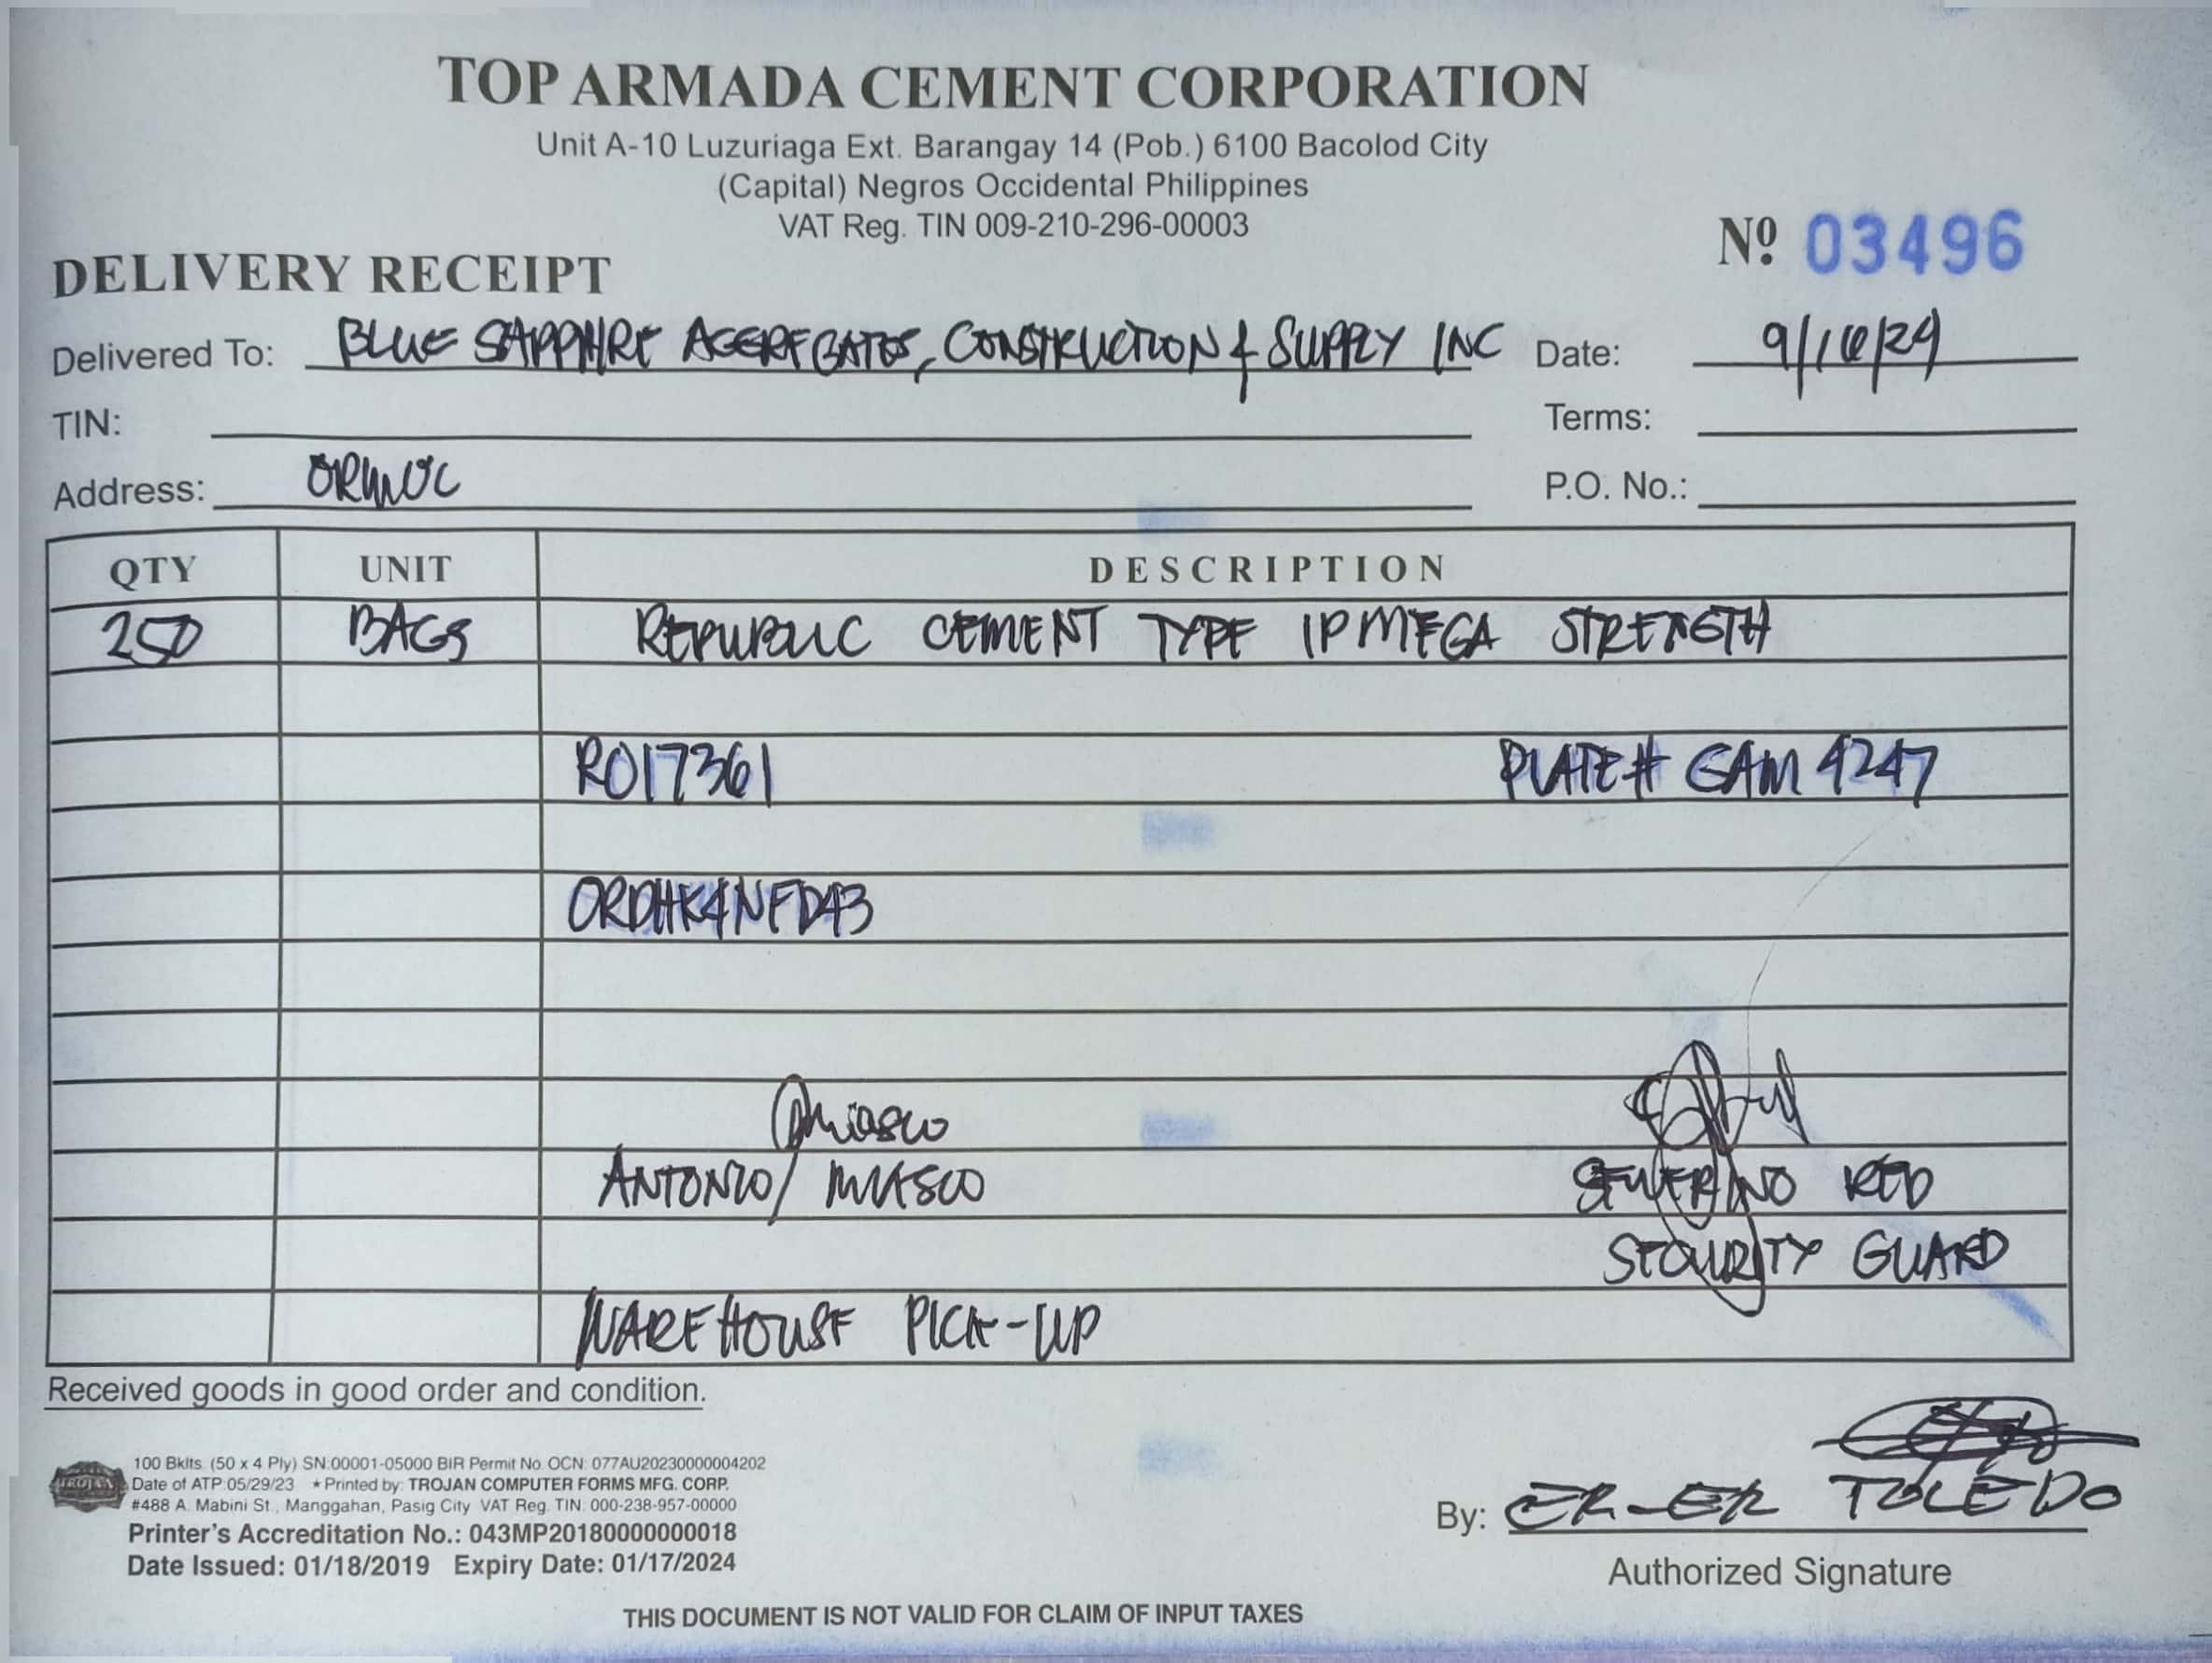 TOP ARMADA CEMENT CORPORATION
Unit A-10 Luzuriaga Ext. Barangay 14 (Pob.) 6100 Bacolod City
(Capital) Negros Occidental Philippines
VAT Reg. TIN 009-210-296-00003
Nº 03496
DELIVERY RECEIPT
Delivered To: BLUE SAPPHIRE AGGREGATES, CONSTRUCTION & SUPPLY INC Date: 9/16/24
TIN: Terms:
Address: ORMOC P.O. No.:
QTY UNIT DESCRIPTION
250 BAGS REPUBLIC CEMENT TYPE 1P MEGA STRENGTH
RO17361 PLATE# GAM 4247
ORDHK4NFD43
ANTONIO MIASCO SEVERINO RED
SECURITY GUARD
WAREHOUSE PICK-UP
Received goods in good order and condition.
TROJAN
100 Bklts. (50 x 4 Ply) SN:00001-05000 BIR Permit No. OCN: 077AU20230000004202
Date of ATP:05/29/23 ★ Printed by: TROJAN COMPUTER FORMS MFG. CORP.
#488 A. Mabini St., Manggahan, Pasig City VAT Reg. TIN: 000-238-957-00000
Printer's Accreditation No.: 043MP20180000000018
Date Issued: 01/18/2019 Expiry Date: 01/17/2024
By: ER-ER TOLEDO
Authorized Signature
THIS DOCUMENT IS NOT VALID FOR CLAIM OF INPUT TAXES